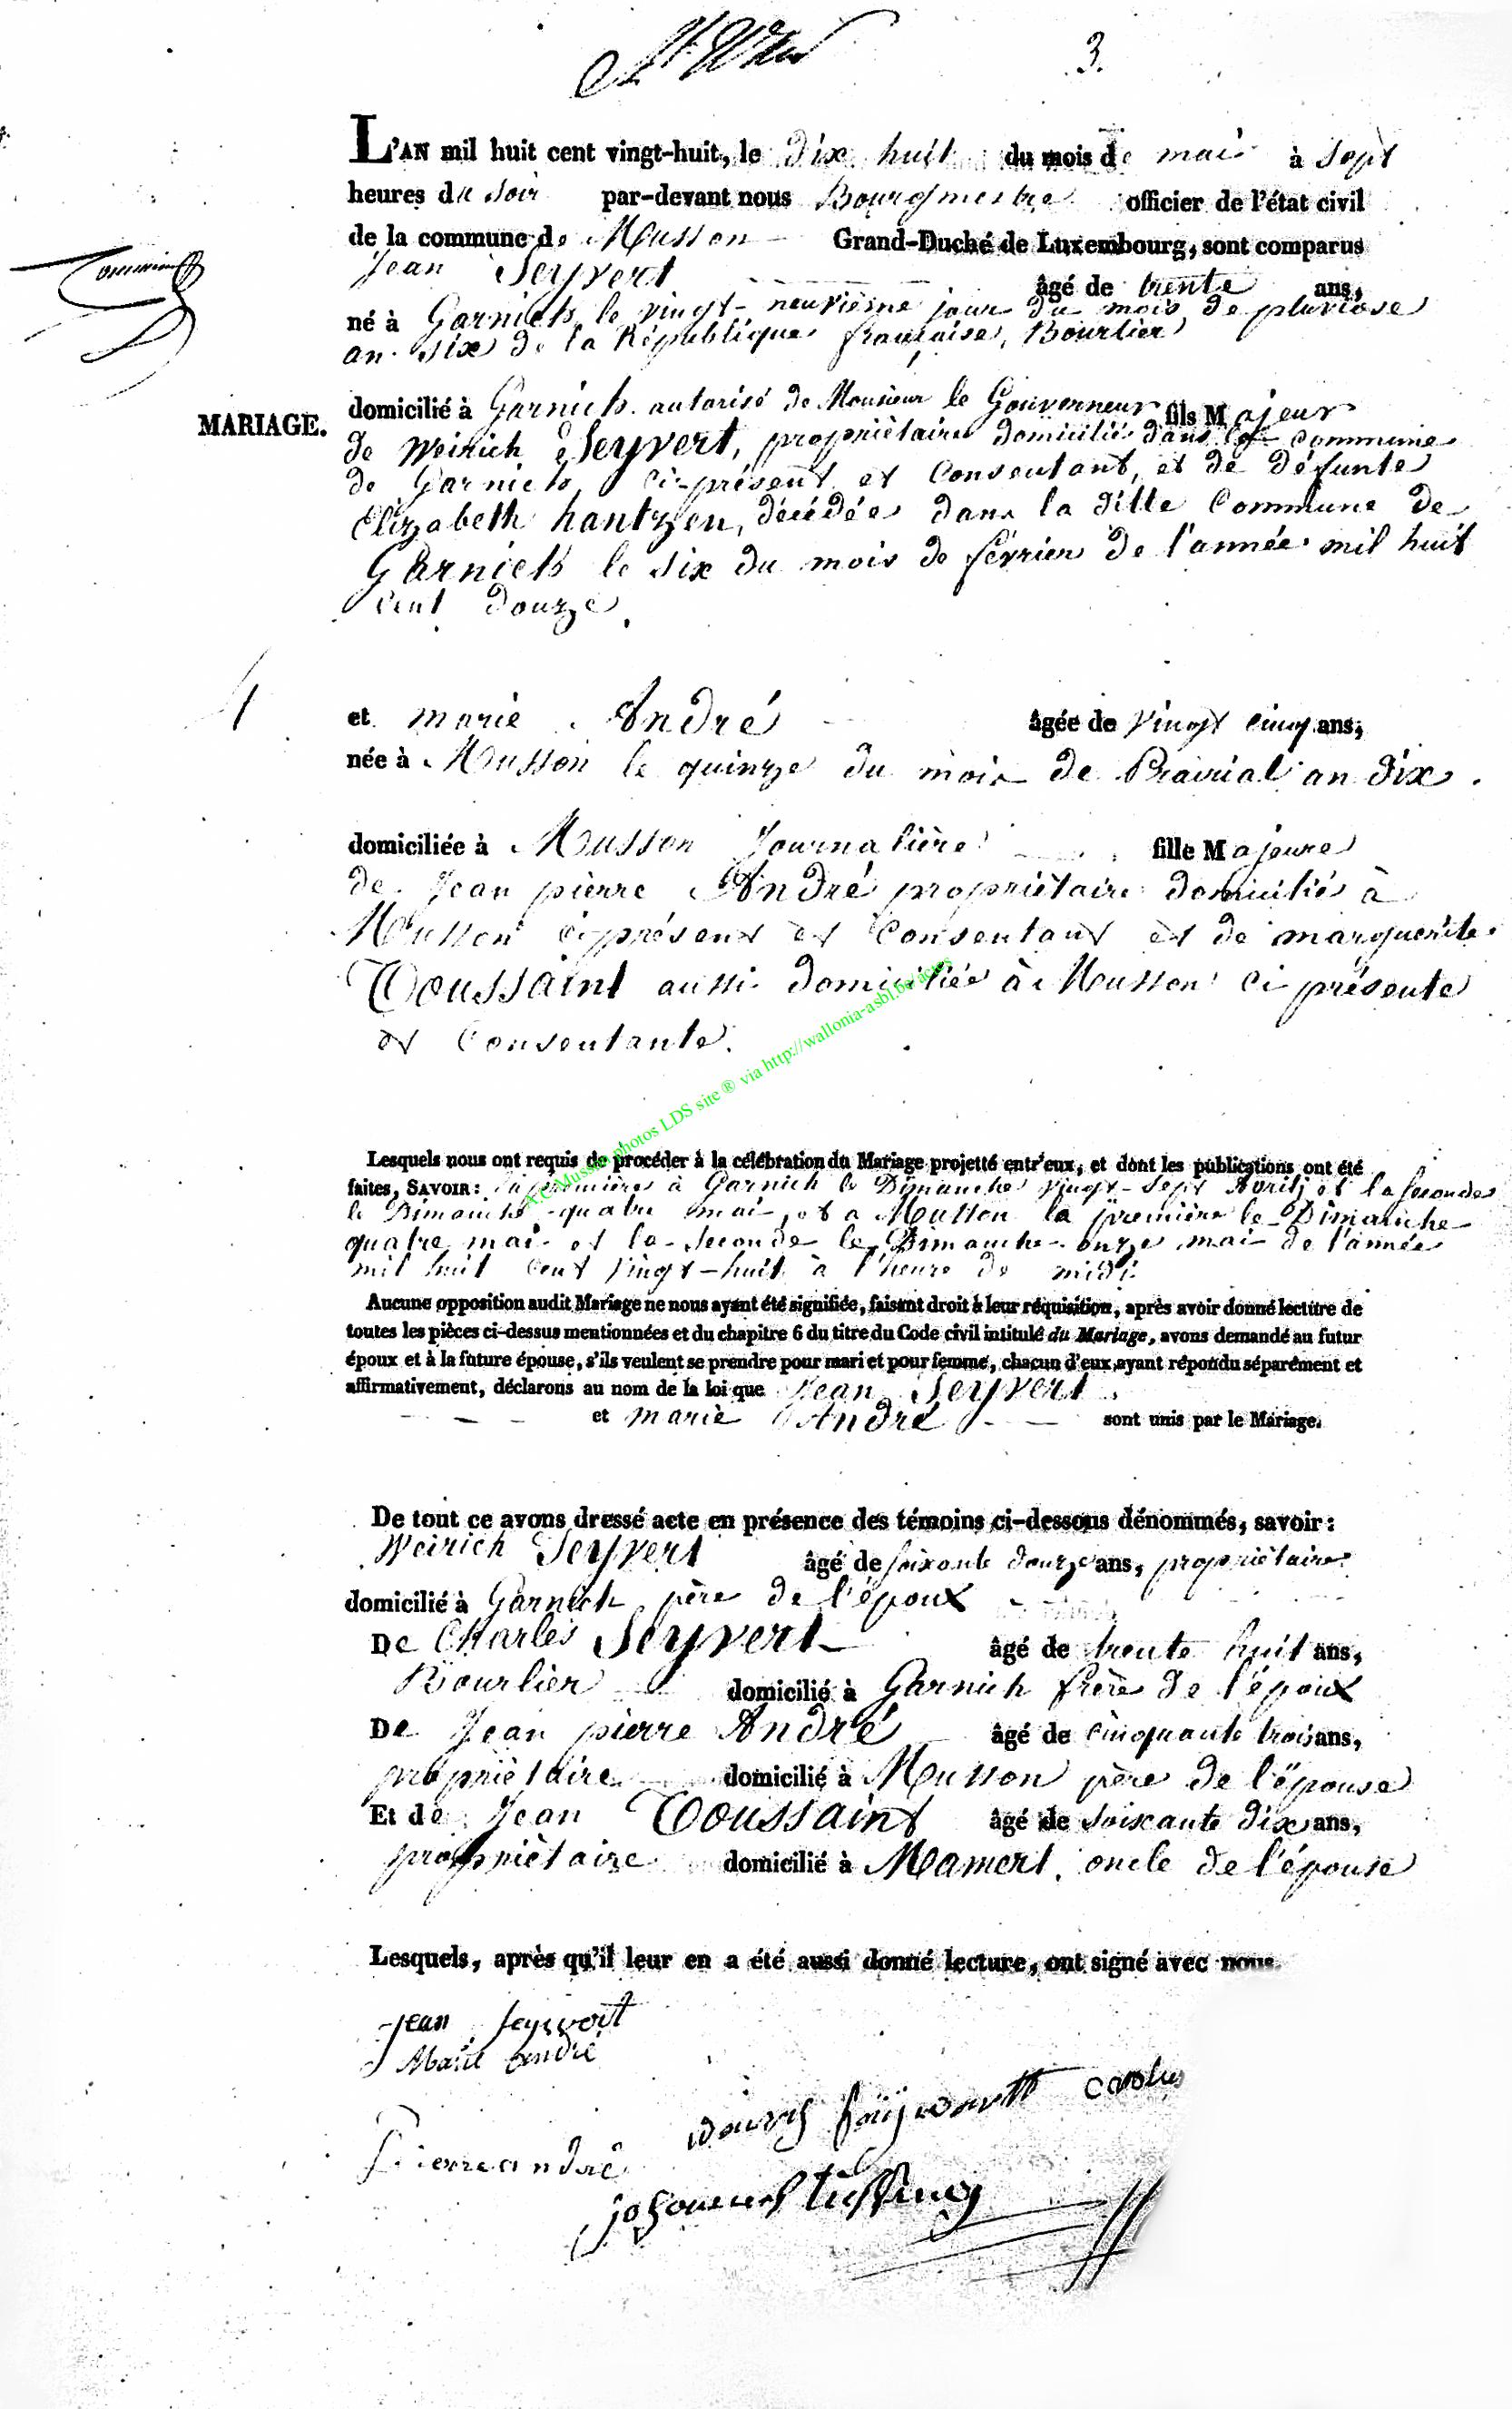 3.
L'AN mil huit cent vingt-huit, le dix huit du mois de mai à sept
heures du soir par-devant nous Bourgmestre officier de l'état civil
de la commune de Musson Grand-Duché de Luxembourg, sont comparus
Jean Seyvert âgé de trente ans,
né à Garnich le vingt-neuvième jour du mois de pluviose
an six de la République française, Bourlier
MARIAGE.
domicilié à Garnich autorisé de Monsieur le Gouverneur fils Majeur
de Weirich Seyvert, propriètaire domicilié dans la commune
de Garnich, ci-présent et Consentant, et de défunte
Elizabeth hantzen, décédée dans la ditte Commune de
Garnich le six du mois de février de l'année mil huit
cent douze.
et marie André âgée de vingt cinq ans,
née à Musson le quinze du mois de Prairial an dix.
domiciliée à Musson Journalière fille Majeure
de Jean pierre André propriétaire domicilié à
Musson ci présent et Consentant et de marguerite
Toussaint aussi domiciliée à Musson ci présente
et Consentante.
Lesquels nous ont requis de procéder à la célébration du Mariage projetté entr'eux, et dont les publications ont été
faites, SAVOIR: la première à Garnich le Dimanche vingt-sept Avril, et la seconde
le Dimanche quatre mai, et a Musson la première le Dimanche
quatre mai et la seconde le Dimanche onze mai de l'année
mil huit cent vingt-huit à l'heure de midi
Aucune opposition audit Mariage ne nous ayant été signifiée, faisant droit à leur réquisition, après avoir donné lecture de
toutes les pièces ci-dessus mentionnées et du chapitre 6 du titre du Code civil intitulé du Mariage, avons demandé au futur
époux et à la future épouse, s'ils veulent se prendre pour mari et pour femme, chacun d'eux ayant répondu séparément et
affirmativement, déclarons au nom de la loi que Jean Seyvert
et marie André sont unis par le Mariage.
De tout ce avons dressé acte en présence des témoins ci-dessous dénommés, savoir:
Weirich Seyvert âgé de soixante douze ans, propriétaire
domicilié à Garnich père de l'époux
De Charles Seyvert âgé de trente huit ans,
Bourlier domicilié à Garnich frère de l'époux
De Jean pierre André âgé de cinquante trois ans,
propriétaire domicilié à Musson père de l'épouse
Et de Jean Toussaint âgé de soixante dix ans,
propriètaire domicilié à Mamert. oncle de l'épouse
Lesquels, après qu'il leur en a été aussi donné lecture, ont signé avec nous.
Jean Seywert
Marie andré
Pierre andré
EC Musson photos LDS site ® via http://wallonia-asbl.be/actes